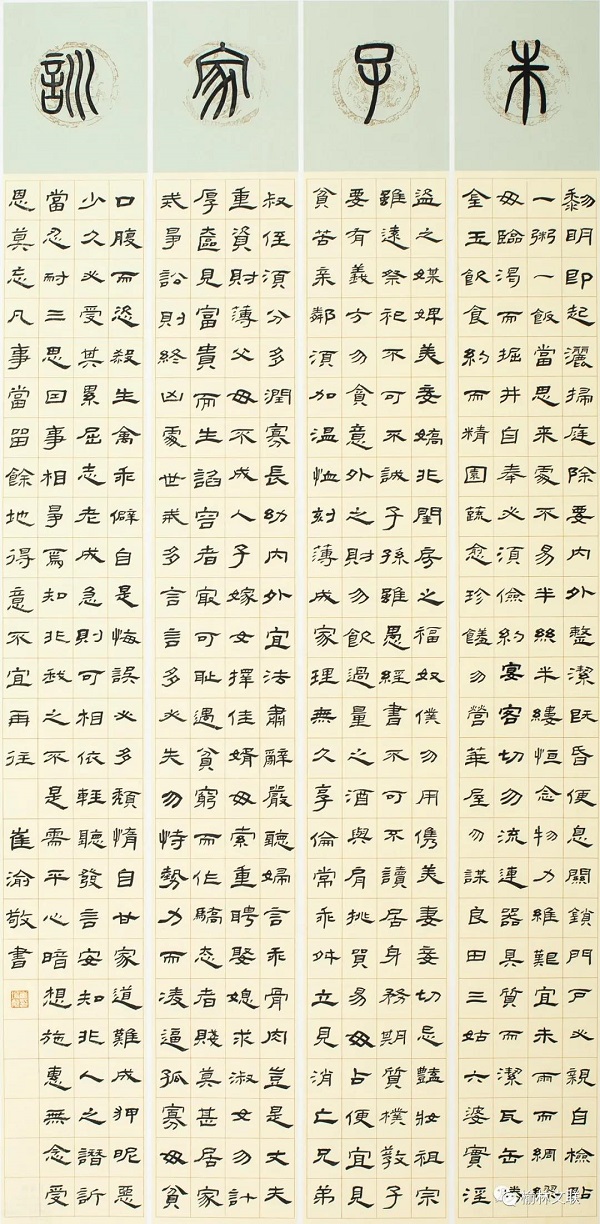 朱子家訓
黎明即起灑掃庭除要內外整潔既昏便息關鎖門戶必親自檢點
一粥一飯當思來處不易半絲米縷恒念物力維艱宜未雨而綢繆
毋臨渴而掘井自奉必須儉約宴客切勿流連器具質而潔瓦缶勝
金玉飲食約而精園蔬愈珍饈勿營華屋勿謀良田三姑六婆實淫
盜之媒婢美妾嬌非閨房之福奴僕勿用儁美妻妾切忌豔妝祖宗
雖遠祭祀不可不誠子孫雖愚經書不可不讀居身務期質樸教子
要有義方勿貪意外之財勿飲過量之酒與肩挑貿易毋占便宜見
貧苦親鄰須加溫恤刻薄成家理無久享倫常乖舛立見消亡兄弟
叔侄須分多潤寡長幼內外宜法肅辭嚴聽婦言乖骨肉豈是丈夫
重資財薄父母不成人子嫁女擇佳婿毋索重聘娶媳求淑女勿計
厚奩見富貴而生諂容者最可恥遇貧窮而作驕態者賤莫甚居家
戒爭訟則終凶處世戒多言言多必失勿恃勢力而凌逼孤寡毋貪
口腹而恣殺生禽乖僻自是悔誤必多頹惰自甘家道難成狎昵惡
少久必受其累屈志老成急則可相依輕聽發言安知非人之譖訴
當忍耐三思因事相爭焉知非我之不是需平心暗想施惠無念受
恩莫忘凡事當留餘地得意不宜再往
崔渝敬書
榆林文联